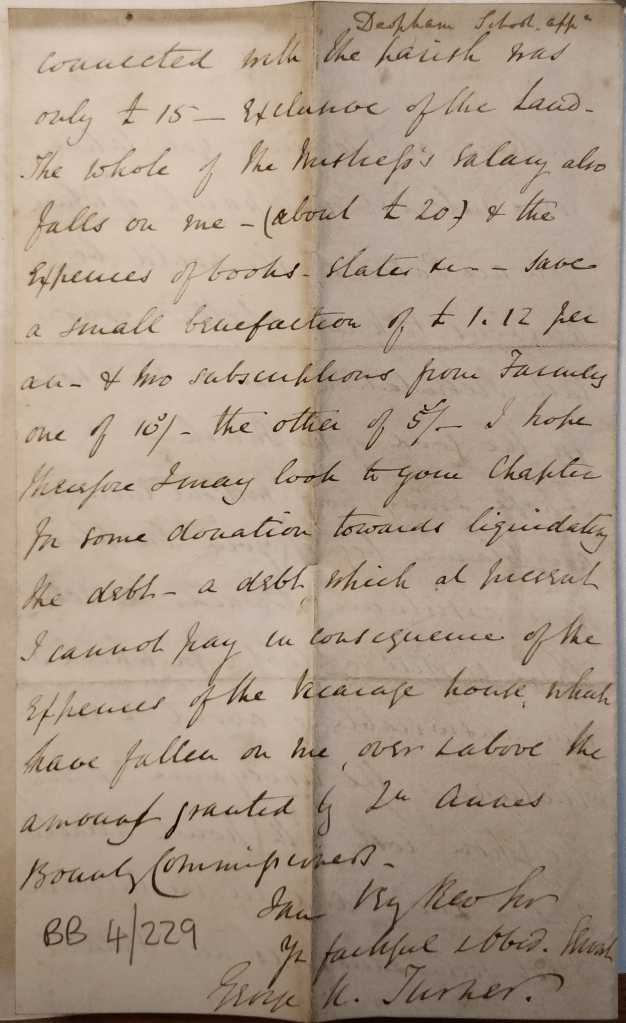 Deopham School appn
connected with the parish was
only £15 — Exclusive of the Land -
The whole of the Mistress's salary also
falls on me - (about £20) & the
Expences of books - slates &c - save
a small benefaction of £1.12 per
an - & two subscriptions from Farmers
one of 10s/- the other of 5s/- I hope
therefore I may look to your Chapter
for some donation towards liquidating
the debt - a debt which at present
I cannot pay in consequence of the
Expences of the Vicarage house which
have fallen on me, over & above the
amount granted by Qn Annes
Bounty Commissioners -
I am Vy Revd Sir
Yr faithful & obed. Servt
George Turner.
BB 4/229